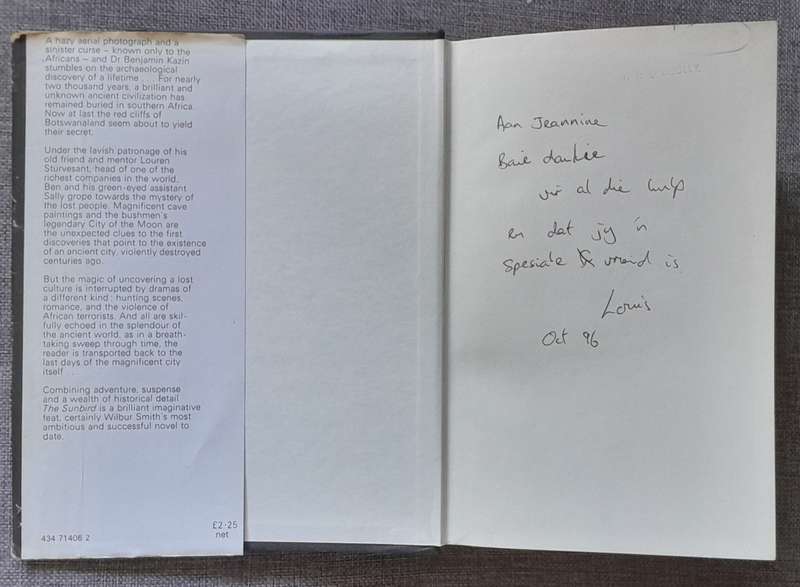 A hazy aerial photograph and a
sinister curse – known only to the
Africans – and Dr Benjamin Kazin
stumbles on the archaeological
discovery of a lifetime . . . For nearly
two thousand years, a brilliant and
unknown ancient civilization has
remained buried in southern Africa.
Now at last the red cliffs of
Botswanaland seem about to yield
their secret.
Under the lavish patronage of his
old friend and mentor Louren
Sturvesant, head of one of the
richest companies in the world,
Ben and his green-eyed assistant
Sally grope towards the mystery of
the lost people. Magnificent cave
paintings and the bushmen's
legendary City of the Moon are
the unexpected clues to the first
discoveries that point to the existence
of an ancient city, violently destroyed
centuries ago.
But the magic of uncovering a lost
culture is interrupted by dramas of
a different kind: hunting scenes,
romance, and the violence of
African terrorists. And all are skil-
fully echoed in the splendour of
the ancient world, as in a breath-
taking sweep through time, the
reader is transported back to the
last days of the magnificent city
itself . . .
Combining adventure, suspense
and a wealth of historical detail
The Sunbird is a brilliant imaginative
feat, certainly Wilbur Smith's most
ambitious and successful novel to
date.
434 71406 2
£2·25
net
Aan Jeannine
Baie dankie
vir al die hulp
en dat jy 'n
Spesiale vriend is
Louis
Oct 96